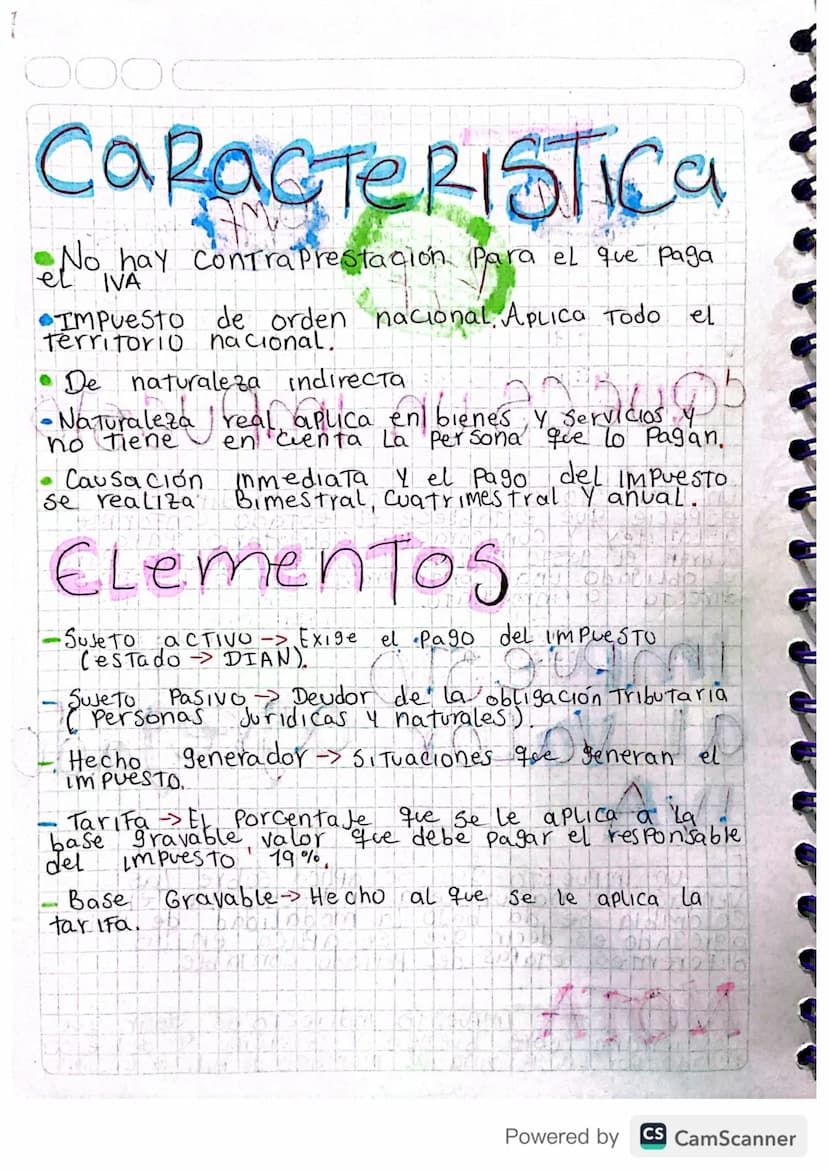 CaRacTeRISTICa
No hay contraprestación para el que paga
el IVA
Impuesto de orden nacional. Aplica Todo el
Territorio nacional.
De naturaleza indirecta
Naturaleza real, aplica en bienes y servicios y
no tiene en cuenta la persona que lo pagan.
Causación inmediata y el pago del impuesto
se realiza Bimestral, cuatrimestral y anual.
Elementos
- Sujeto activo -> Exige el pago del impuesto
(estado -> DIAN).
- Sujeto Pasivo -> Deudor de la obligación Tributaria
(personas Juridicas y naturales).
- Hecho generador -> situaciones que generan el
impuesto.
- Tarifa -> El porcentaje que se le aplica a la
base gravable, valor que debe pagar el responsable
del impuesto 19%.
- Base Gravable -> Hecho al que se le aplica la
tarifa.
Powered by CS CamScanner